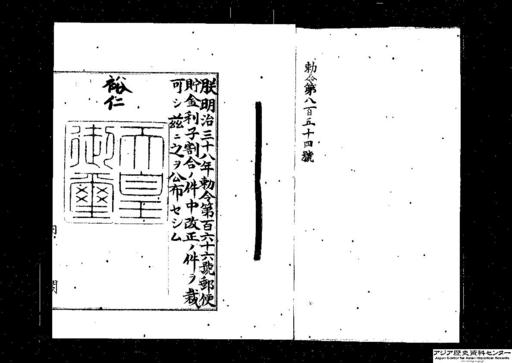 勅令第八百五十四號
朕明治三十八年勅令第百六十六號郵便
貯金利子割合ノ件中改正ノ件ヲ裁
可シ茲ニ之ヲ公布セシム
裕仁
天皇
御璽
アジア歴史資料センター
Japan Center for Asian Historical Records